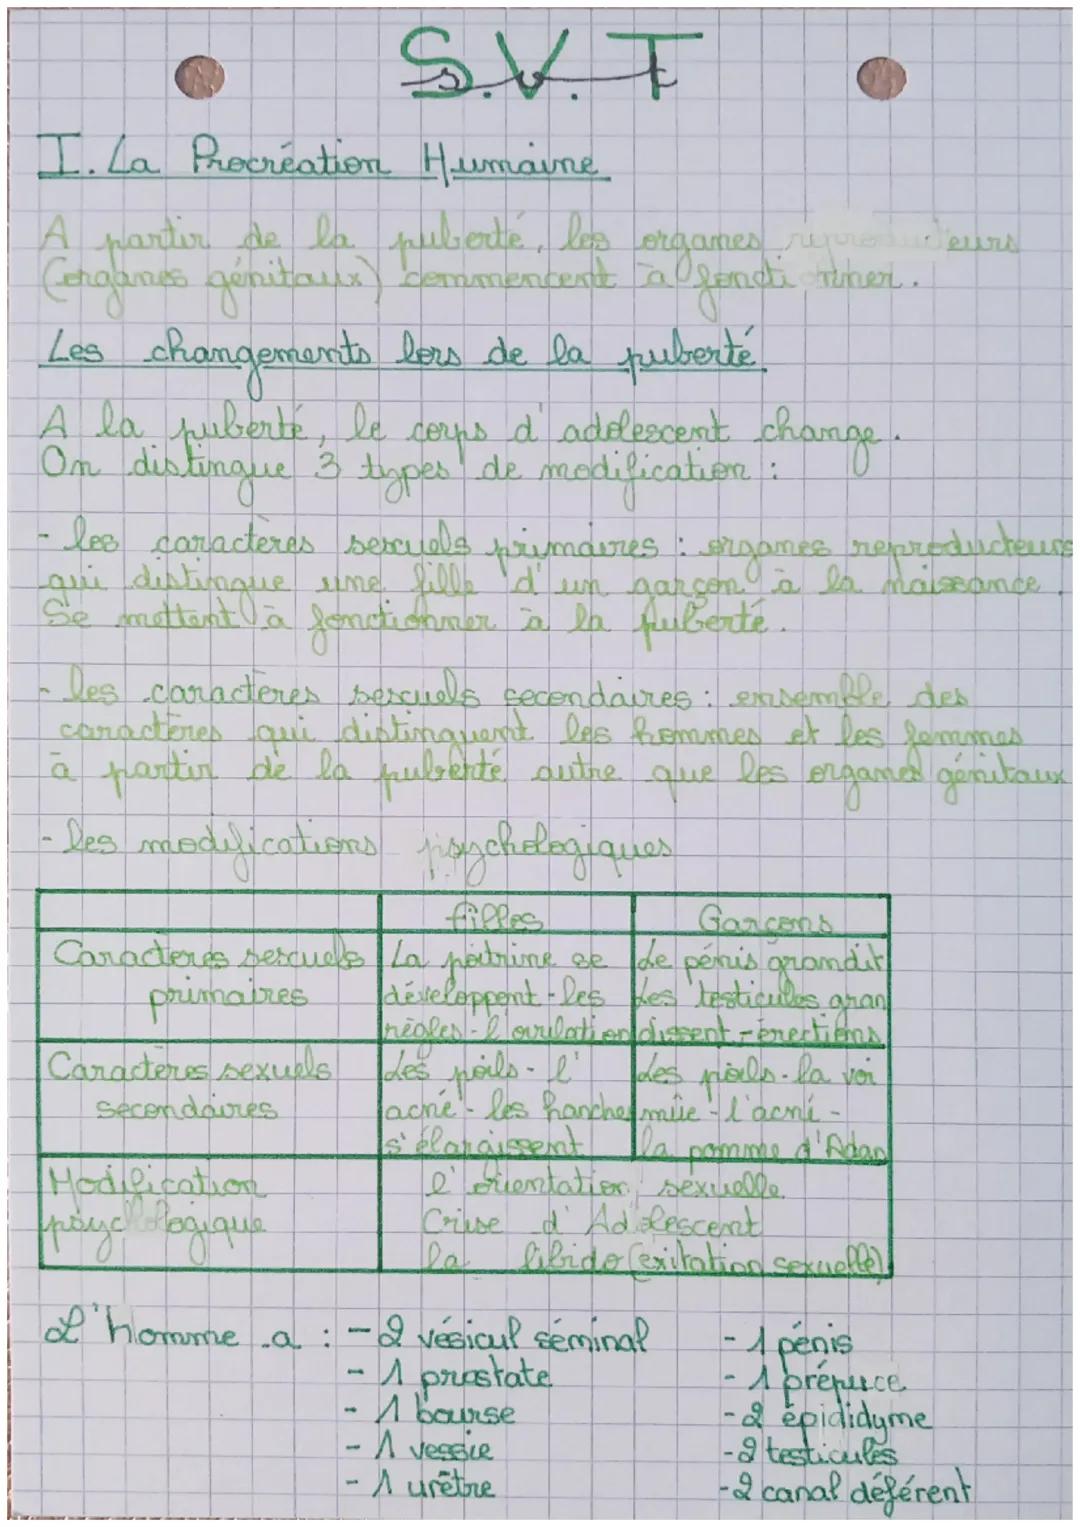 S.V.T
I. La Procréation Humaine
A partir de la puberté, les organes reproducteurs
(organes génitaux) commencent à fonctionner.
Les changements lors de la puberté
A la puberté, le corps d'adolescent change.
On distingue 3 types de modification :
- les caractères sexuels primaires : organes reproducteurs
qui distingue une fille d'un garçon à la naissance.
Se mettent à fonctionner à la puberté.
- les caractères sexuels secondaires : ensemble des
caractères qui distinguent les hommes et les femmes
à partir de la puberté autre que les organes génitaux
- les modifications psychologiques
filles Garçons
Caractères sexuels primaires
La poitrine se
développent - les
règles - l'ovulation
Le pénis grandit
Les testicules gran
dissent - érections
Caractères sexuels secondaires
Les poils - l'
acné - les hanches
s'élargissent
Les poils - la voi
mûe - l'acné -
la pomme d'Adan
Modification psychologique
l'orientation sexuelle
Crise d'Adolescent
la libido (exitation sexuelle)
L'homme a : - 2 vésicul séminal
- 1 prostate
- 1 bourse
- 1 vessie
- 1 urètre
- 1 pénis
- 1 prépuce
- 2 épididyme
- 2 testicules
- 2 canal déférent